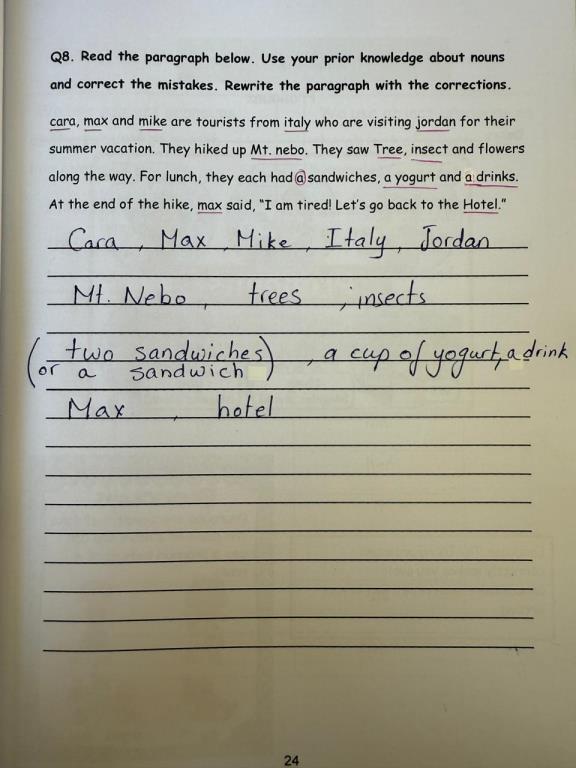 Q8. Read the paragraph below. Use your prior knowledge about nouns
and correct the mistakes. Rewrite the paragraph with the corrections.
cara, max and mike are tourists from italy who are visiting jordan for their
summer vacation. They hiked up Mt. nebo. They saw Tree, insect and flowers
along the way. For lunch, they each had a sandwiches, a yogurt and a drinks.
At the end of the hike, max said, “I am tired! Let’s go back to the Hotel.”
Cara , Max , Mike , Italy , Jordan
Mt. Nebo , trees , insects
( two sandwiches ) , a cup of yogurt, a drink
or a sandwich
Max , hotel
24